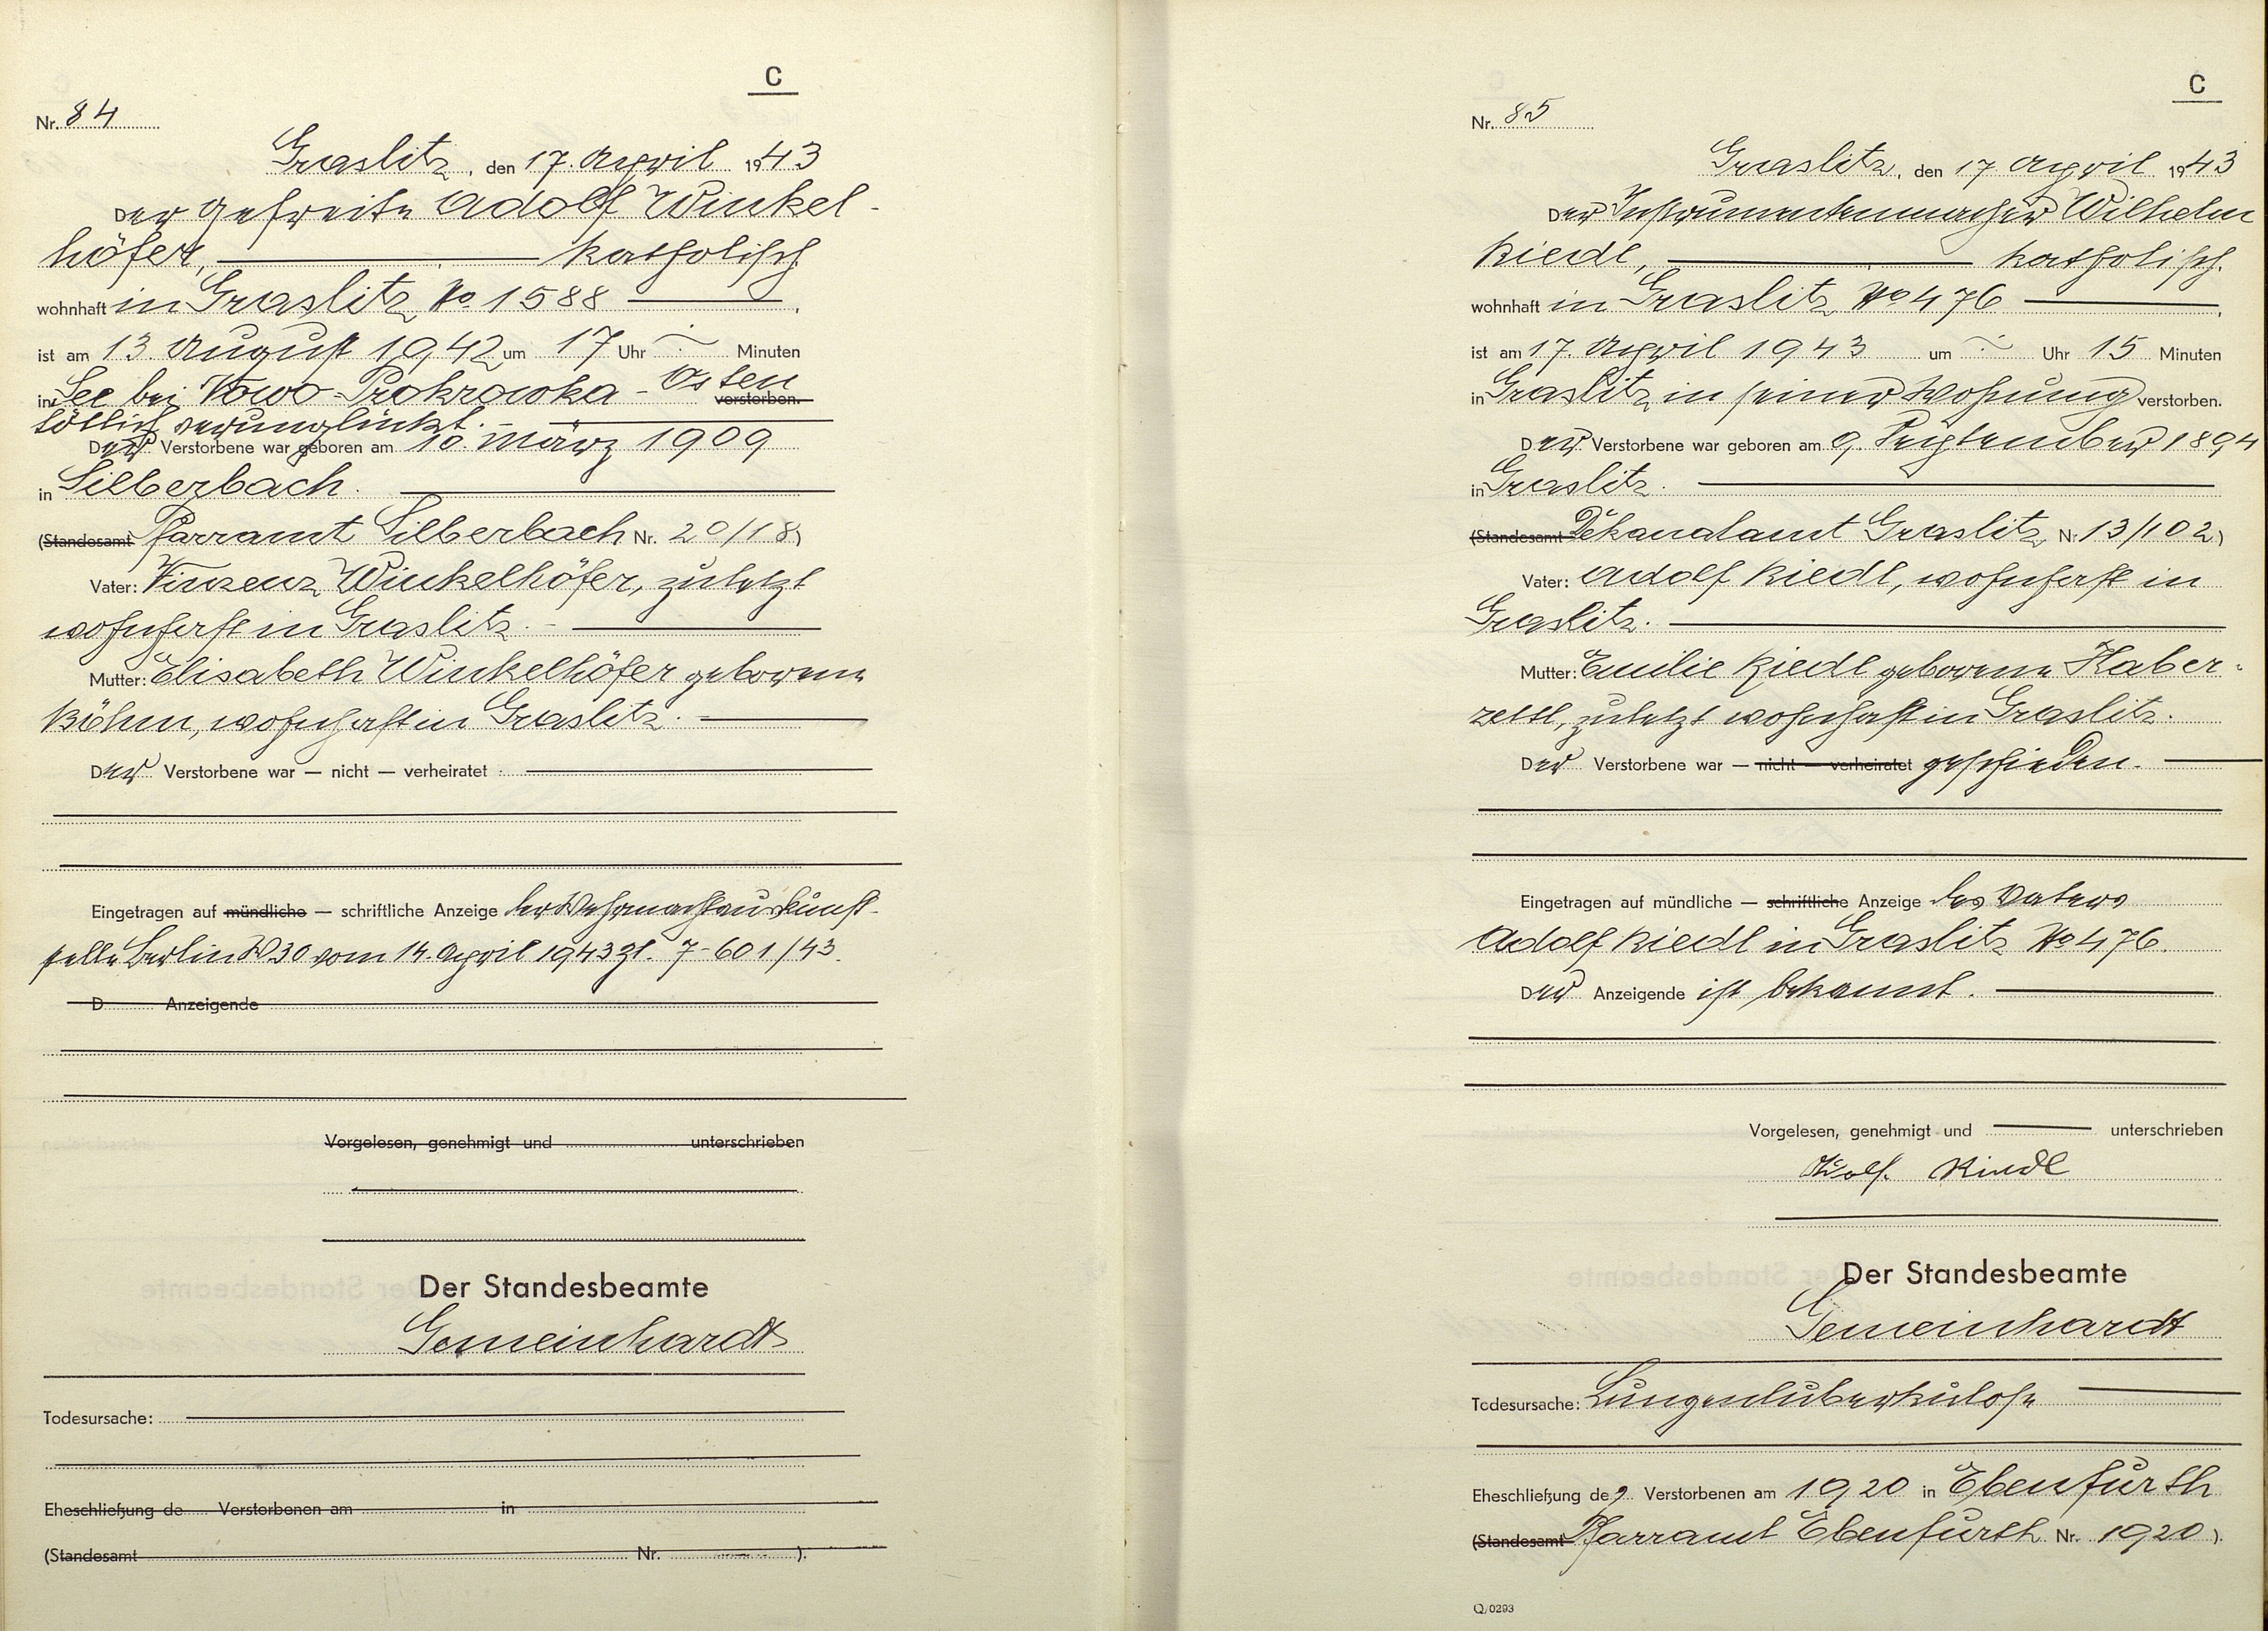 C
Nr. 84
Graslitz, den 17. April 1943
Der Gefreite Adolf Winkel-
höfer, katholisch
wohnhaft in Graslitz No. 1588,
ist am 13. August 1942 um 17 Uhr ÷ Minuten
in See bei Nowo-Prokrowka - Osten verstorben.
tötlich verunglückt.
Der Verstorbene war geboren am 10. März 1909
in Silberbach.
(Standesamt Pfarramt Silberbach Nr. 20/18)
Vater: Vinzenz Winkelhöfer, zuletzt
wohnhaft in Graslitz.
Mutter: Elisabeth Winkelhöfer geborene
Böhm, wohnhaft in Graslitz.
Der Verstorbene war — nicht — verheiratet
Eingetragen auf mündliche — schriftliche Anzeige der Wehrmachtauskunft-
stelle Berlin W30 vom 14. April 1943 Zl. 7-601/43.
D Anzeigende
Vorgelesen, genehmigt und unterschrieben
Der Standesbeamte
Gemeinhardt
Todesursache:
Eheschließung de Verstorbenen am in
(Standesamt Nr. ).
C
Nr. 85
Graslitz, den 17. April 1943
Der Instrumentenmacher Wilhelm
Riedl, katholisch.
wohnhaft in Graslitz No 476,
ist am 17. April 1943 um ÷ Uhr 15 Minuten
in Graslitz in seiner Wohnung verstorben.
Der Verstorbene war geboren am 9. September 1894
in Graslitz.
(Standesamt Dekanalamt Graslitz Nr 13/102)
Vater: Adolf Riedl, wohnhaft in
Graslitz.
Mutter: Emilie Riedl geborene Haber-
zettl, zuletzt wohnhaft in Graslitz.
Der Verstorbene war — nicht — verheiratet geschieden.
Eingetragen auf mündliche — schriftliche Anzeige des Vaters
Adolf Riedl in Graslitz No 476.
Der Anzeigende ist bekannt.
Vorgelesen, genehmigt und unterschrieben
Adolf. Riedl
Der Standesbeamte
Gemeinhardt
Todesursache: Lungentuberkulose
Eheschließung des Verstorbenen am 1920 in Ebenfurth
(Standesamt Pfarramt Ebenfurth Nr. 1920).
Q/0293